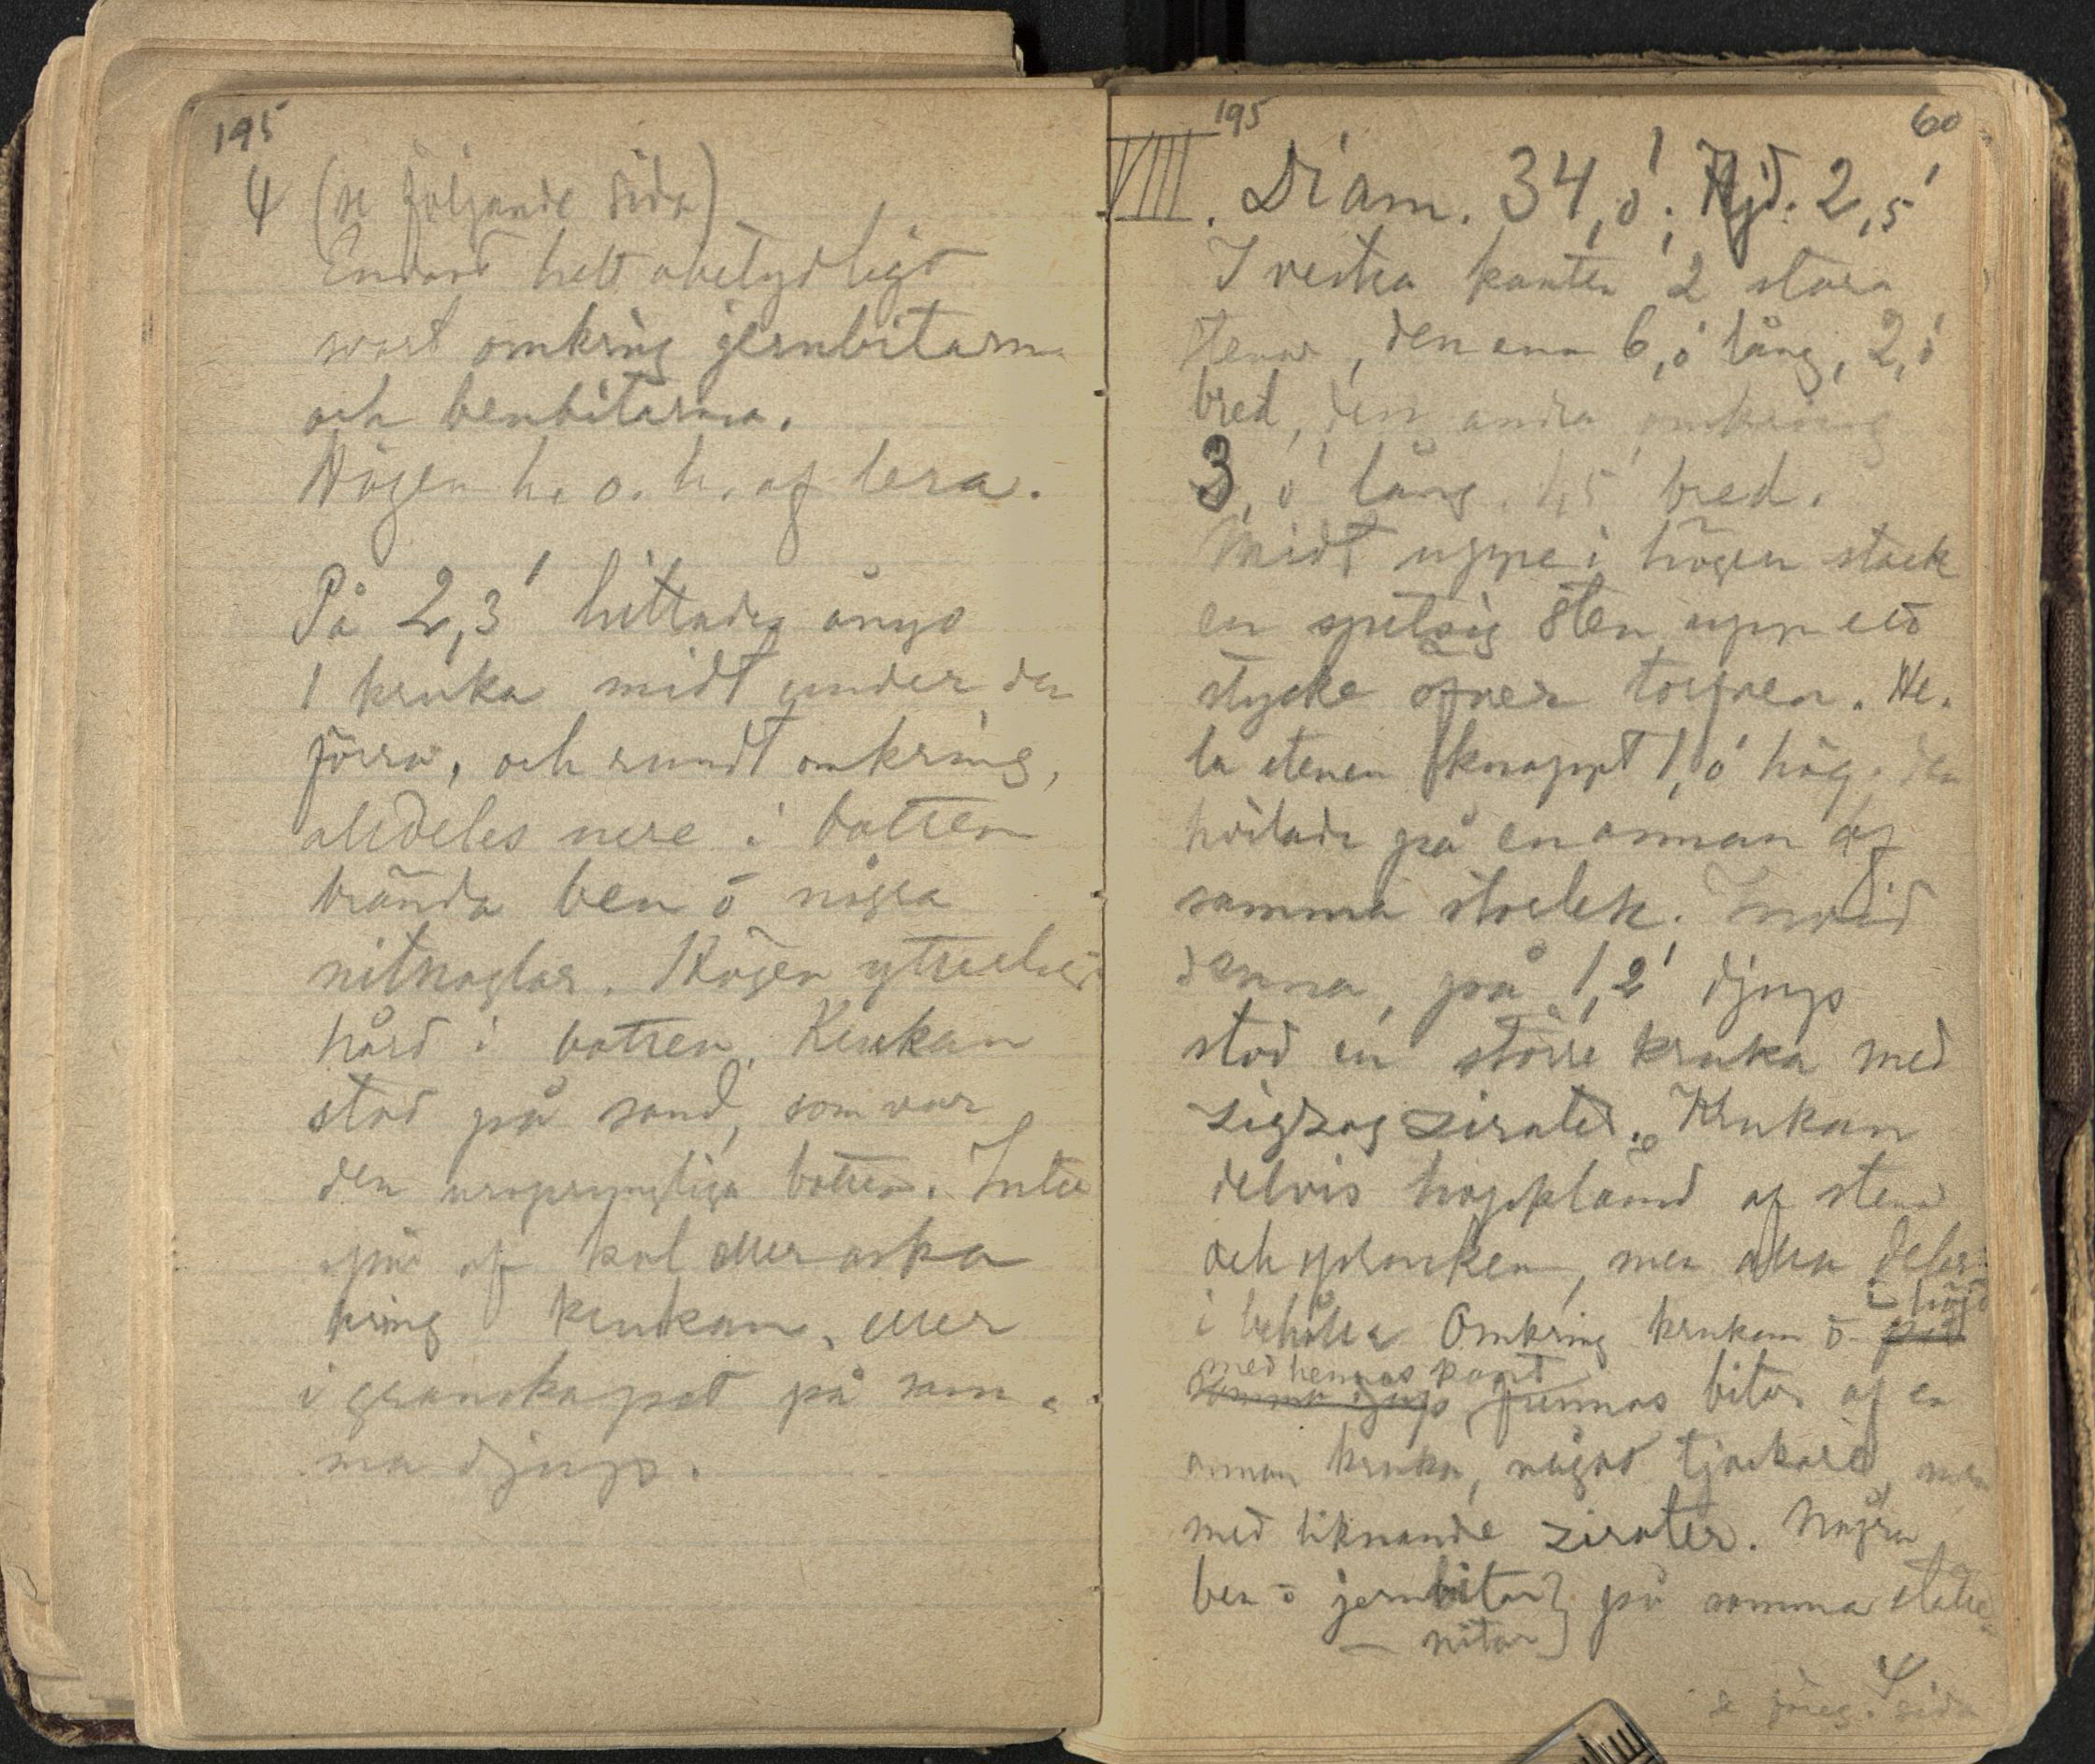 195
(se följande sida)
Endast helt obetydligt
svart omkring jernbitarna
och benbitarna.
Högen h. o. h. af lera.
På 2,3' hittades ånyo
1 kruka midt under den
förra, och rundt omkring,
alldeles nere i botten
brända ben o några
nitnaglar. Högen ytterligt
hård i botten. Krukan
stod på sand, som var
den ursprungliga botten. Intet
spår af kol eller aska
kring krukan, eller
i granskapet på sam
ma djup.
195
60
VIII. Diam. 34,0'; Höjd. 2,5'
I vestra kanten 2 stora
stenar, den ena 6,0' lång, 2,0'
bred, den andra omkring
3,0' lång. 1,5' bred.
Midt uppe i högen stack
en spetsig sten upp ett
stycke öfver torfven. He-
la stenen knappt 1,0' hög. den
hvilade på en annan af
samma storlek. Invid
denna, på 1,2' djup
stod en större kruka med
zigzag zirater. Krukan
delvis hopklämd af sten
och sprucken, men alla delar
i behåll. Omkring krukan o på i höjd
samma djup med hennes kant funnos bitar af en
annan kruka, något tjockare, men
med liknande zirater. Några
ben o jernbitar } på samma ställe
— nitar }
se föreg. sida